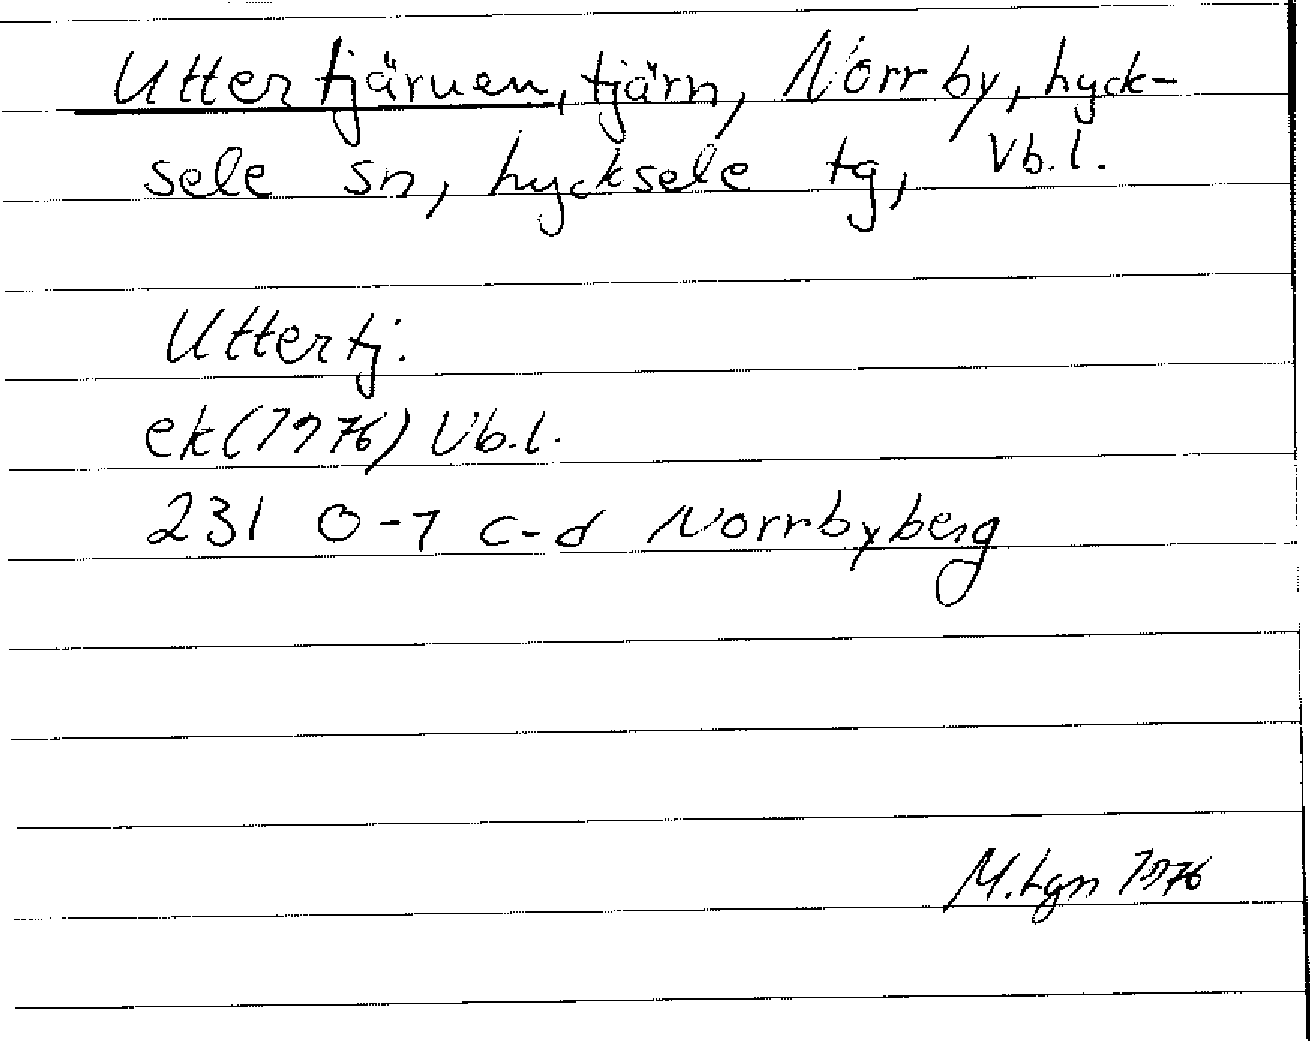 Uttertjärnen, tjärn, Norrby, Lyck-
sele sn, Lycksele tg, Vb.l.
Uttertj.
ek(1976) Vb.l.
231 0-1 c-d Norrbyberg
M.Lgn 1976